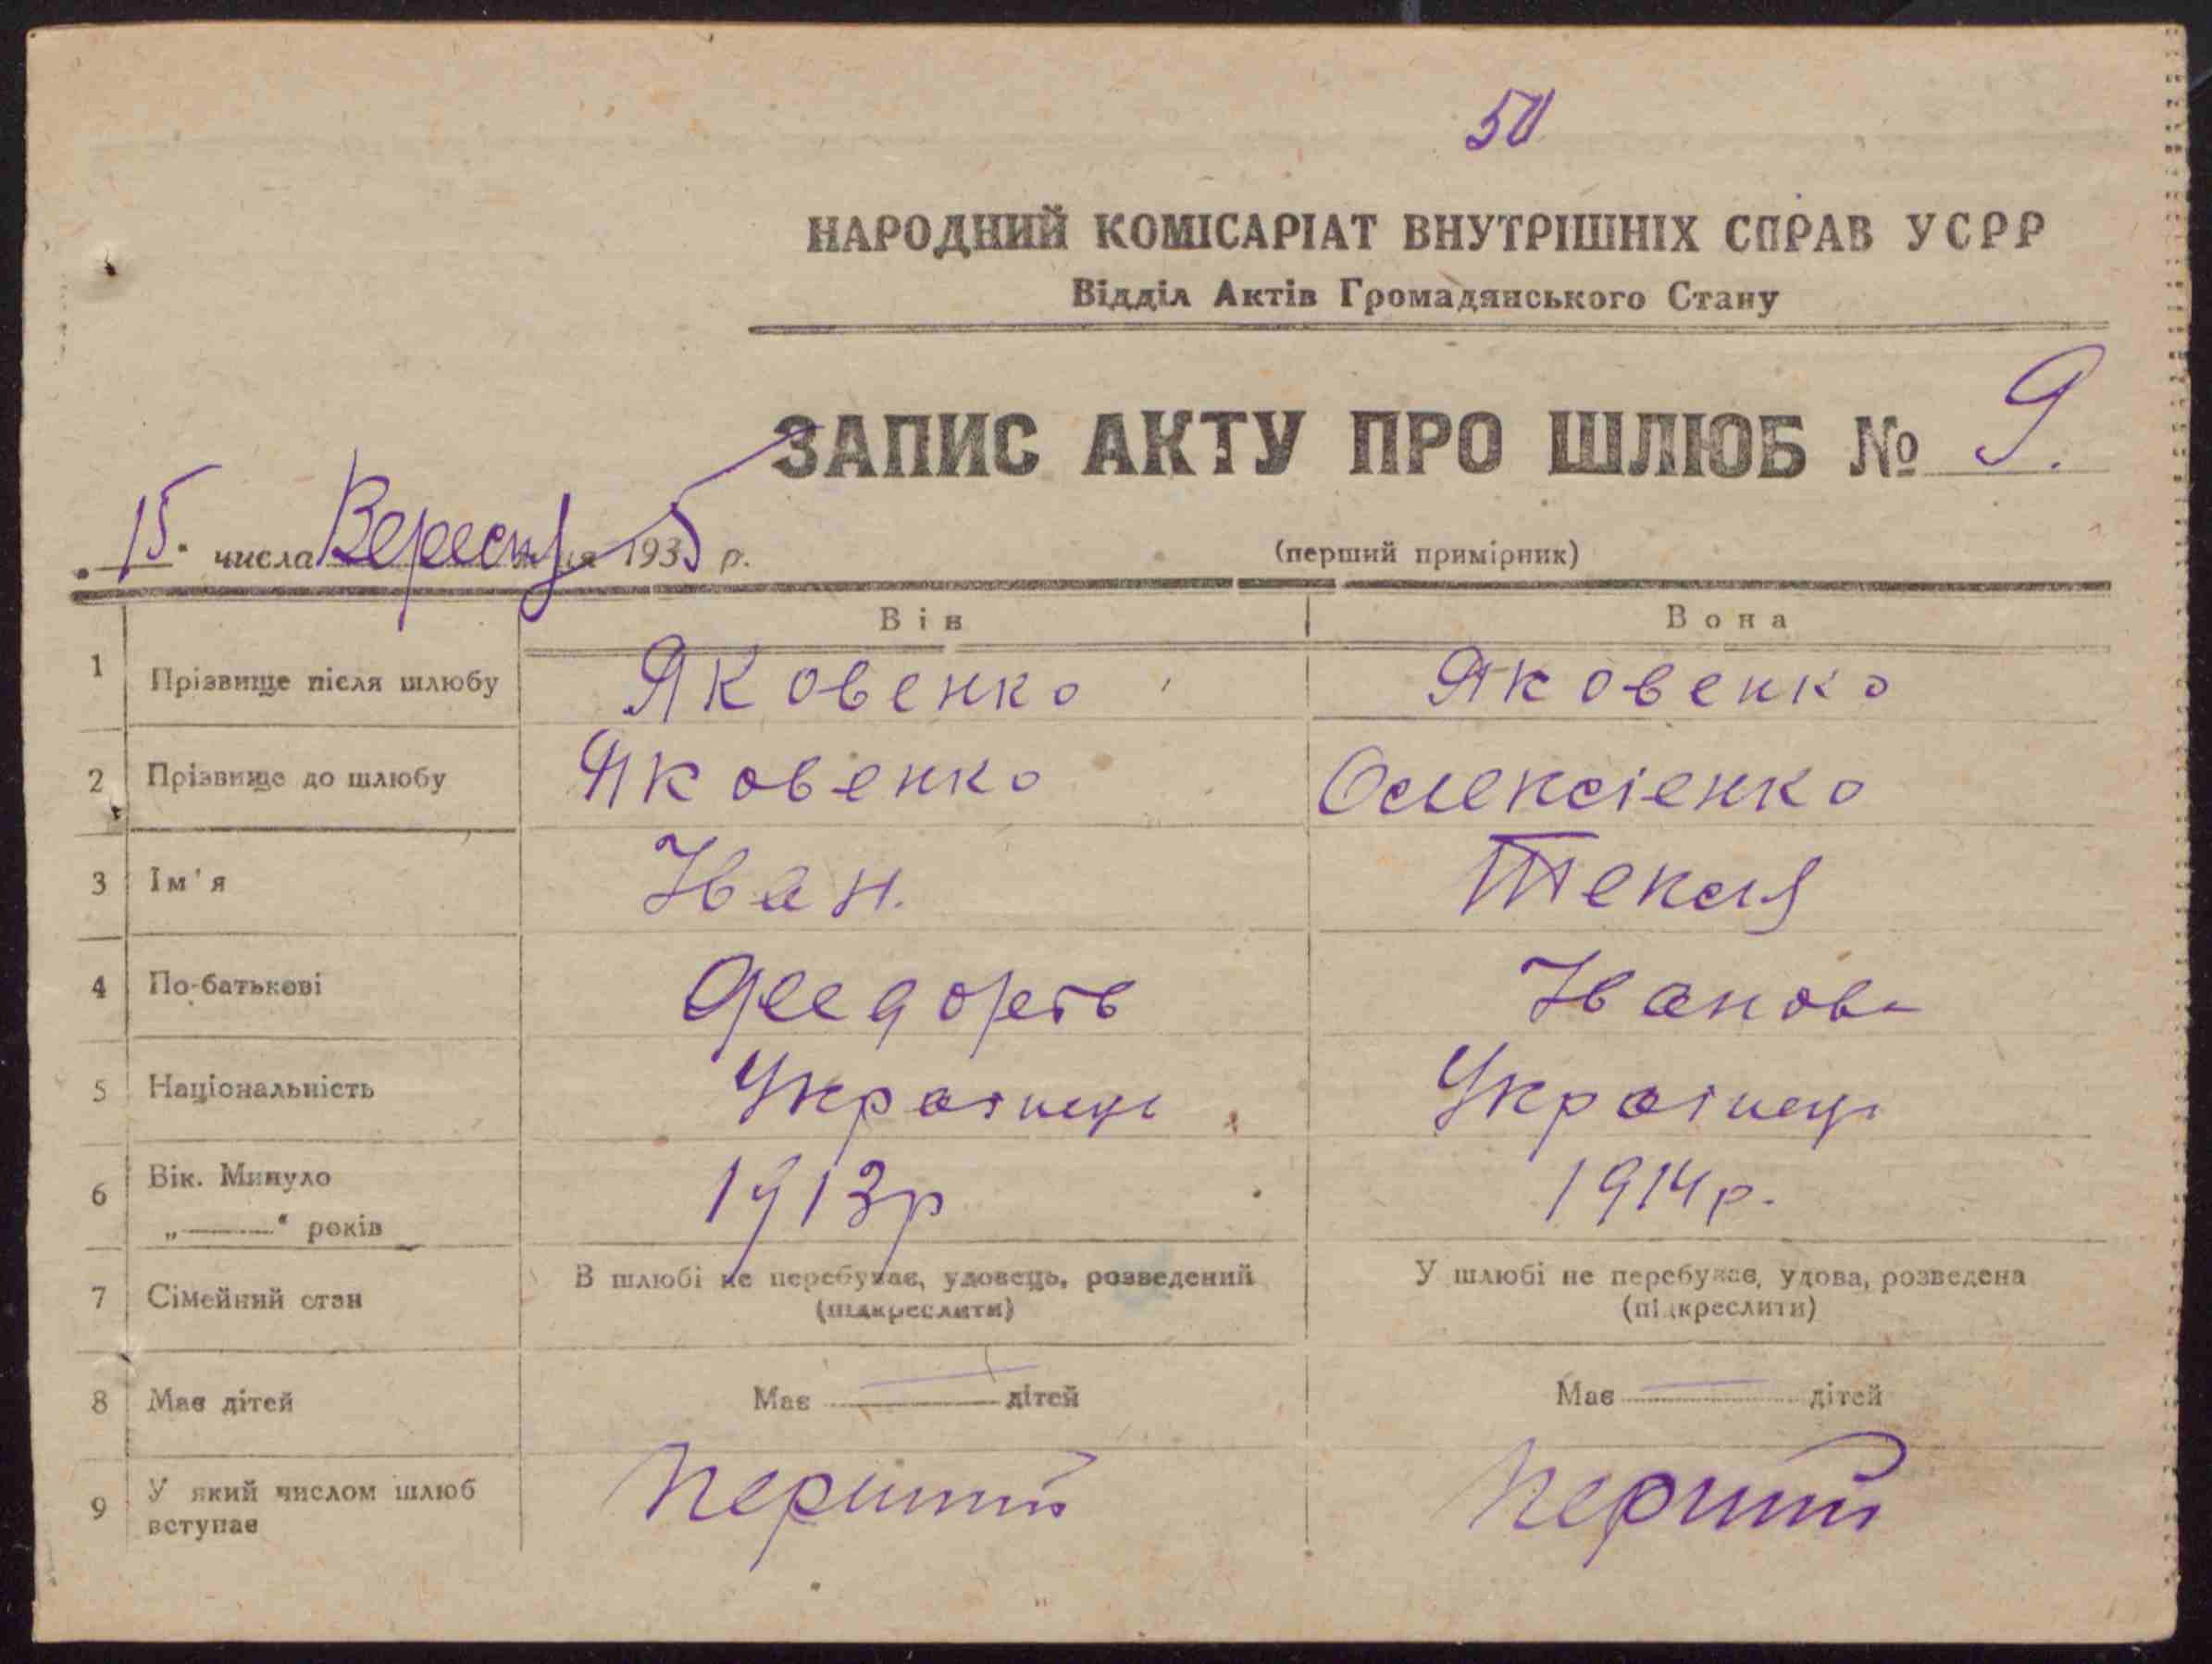 50
НАРОДНИЙ КОМІСАРІАТ ВНУТРІШНІХ СПРАВ УСРР
Відділ Актів Громадянського Стану
ЗАПИС АКТУ ПРО ШЛЮБ № 9.
15. числа Вересня 1935 р.
(перший примірник)
Він Вона
1 Прізвище після шлюбу Яковенко Яковенко
2 Прізвище до шлюбу Яковенко Олексієнко
3 Ім'я Іван. Текля
4 По-батькові Федоров Іванов
5 Національність Українець Українець
6 Вік. Минуло 1913р 1914р.
„ — " років
7 Сімейний стан В шлюбі не перебуває, удовець, розведений У шлюбі не перебуває, удова, розведена
(підкреслити) (підкреслити)
8 Має дітей Має — дітей Має — дітей
9 У який числом шлюб вступає Перший Перший